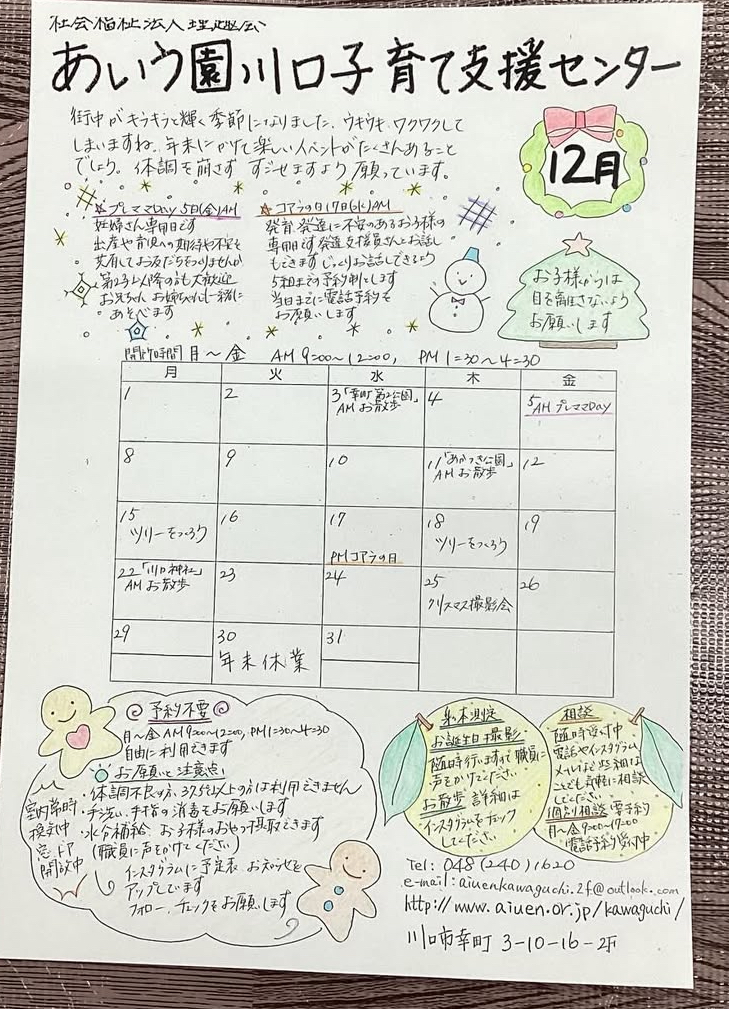 社会福祉法人
あいう園川口子育て支援センター
街中がキラキラと輝く季節になりました。ウキウキ、ワクワクして
しまいますね。年末にかけて楽しいイベントがたくさんあること
でしょう。体調を崩さず すごせますよう願っています。
12月
☆プレママDay 5日(金)AM
妊婦さん専用日です
出産や育児への期待や不安を
共有してお友だちをつくりませんか
第2子以降の方も大歓迎
お兄ちゃん お姉ちゃんも一緒に
あそべます
☆コアラの日17日(水)AM
発育、発達に不安のあるお子様の
専用日です 発達支援員さんとお話し
もできます じっくりお話しできるよう
5組までの予約制とします
当日までに電話予約を
お願いします
お子様からは
目を離さないよう
お願いします
開所時間 月〜金 AM 9:00〜12:00, PM 1:30〜4:30
月 火 水 木 金
1 2 3「幸町第2公園」AM お散歩 4 5 AM プレママDay
8 9 10 11「あかつき公園」AM お散歩 12
15 ツリーをつくろう 16 17 PMコアラの日 18 ツリーをつくろう 19
22「川口神社」AM お散歩 23 24 25 クリスマス撮影会 26
29 30 31
年末休業
予約不要
月〜金 AM 9:00〜12:00, PM 1:30〜4:30
自由に利用できます
お願いと注意点
・体調不良の方、37.5℃以上の方は利用できません
・手洗い、手指の消毒をお願いします
・水分補給、お子様のおやつ摂取できます
(職員に声をかけてください)
インスタグラムに予定表 お知らせを
アップしています
フォロー、チェックをお願いします
室内常時
換気中
窓、ドア
開放中
身体測定
お誕生日撮影
随時行いますので職員に
声をかけてください
お散歩 詳細は
インスタグラムをチェック
してください
相談
随時受付中
電話やインスタグラム
メールなど些細な
ことでも気軽に相談
してください
個別相談 要予約
月〜金 9:00〜17:00
電話予約受付中
Tel: 048(240)1620
e-mail: aiuenkawaguchi.2f@outlook.com
http://www.aiuen.or.jp/kawaguchi/
川口市幸町 3-10-16-2F